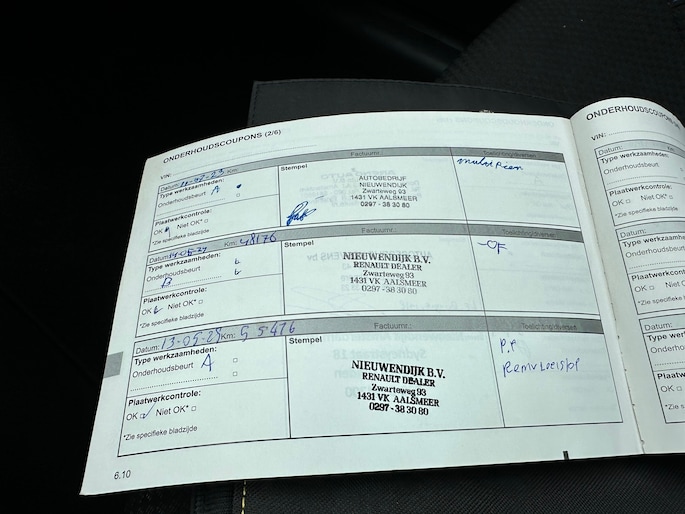 ONDERHOUDSCOUPONS (2/6)
VIN:
Datum: Km: Factuurnr.: Toelichting/diversen
Type werkzaamheden:
Onderhoudsbeurt A
Plaatwerkcontrole:
OK Niet OK*
*Zie specifieke bladzijde
Stempel
AUTOBEDRIJF
NIEUWENDIJK
Zwarteweg 93
1431 VK AALSMEER
0297 - 38 30 80
Datum: Km: 48176
Type werkzaamheden:
Onderhoudsbeurt
Plaatwerkcontrole:
OK Niet OK*
*Zie specifieke bladzijde
Stempel
NIEUWENDIJK B.V.
RENAULT DEALER
Zwarteweg 93
1431 VK AALSMEER
0297 - 38 30 80
Toelichting/diversen
-OF
Datum: 13-05-25 Km: 55476 Factuurnr.: Toelichting/diversen
Type werkzaamheden:
Onderhoudsbeurt A
Plaatwerkcontrole:
OK Niet OK*
*Zie specifieke bladzijde
Stempel
NIEUWENDIJK B.V.
RENAULT DEALER
Zwarteweg 93
1431 VK AALSMEER
0297 - 38 30 80
P.P
Remvloeistof
6.10
ONDERHOUDSCOUPONS
VIN:
Datum:
Type werkzaamheden:
Onderhoudsbeurt
Plaatwerkcontrole:
OK Niet OK*
*Zie specifieke bladzijde
Datum:
Type werkzaamhe
Onderhoudsbeu
Plaatwerkcontr
OK Niet O
*Zie specifieke bla
Datum:
Type werkza
Onderhouds
Plaatwerkco
OK Nie
*Zie specifiek